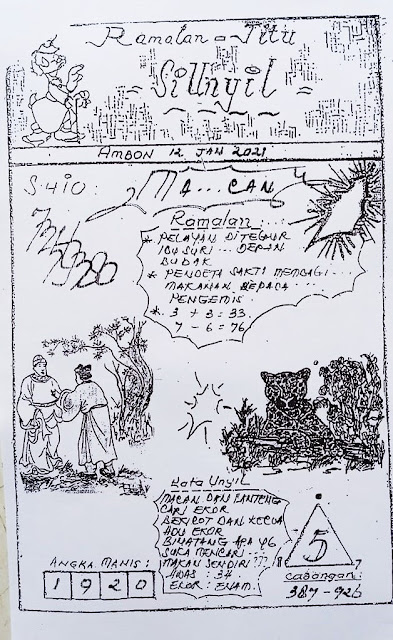 Ramalan = Jitu
= SiUnyil =
AMBON 12 JAN 2021
SHIO : MA...CAN
Ramalan : ...
* PELAYAN DITEGUR
IBU SURI... DEPAN
BUDAK
* PENDETA SAKTI MEMBAGI...
MAKANAN KEPADA...
PENGEMIS.
* 3 + 3 = 33.
7 - 6 = 76
Kata Unyil
MACAN DAN BANTENG
CARI EKOR
BEKICOT DAN KECOA
ADU EKOR
BINATANG APA YG
SUKA MENCARI...
MAKAN SENDIRI ???
AWAS : 34
EKOR : ENAM.
ANGKA MANIS :
1 9 2 0
5
8 7
Cadangan :
387 - 926